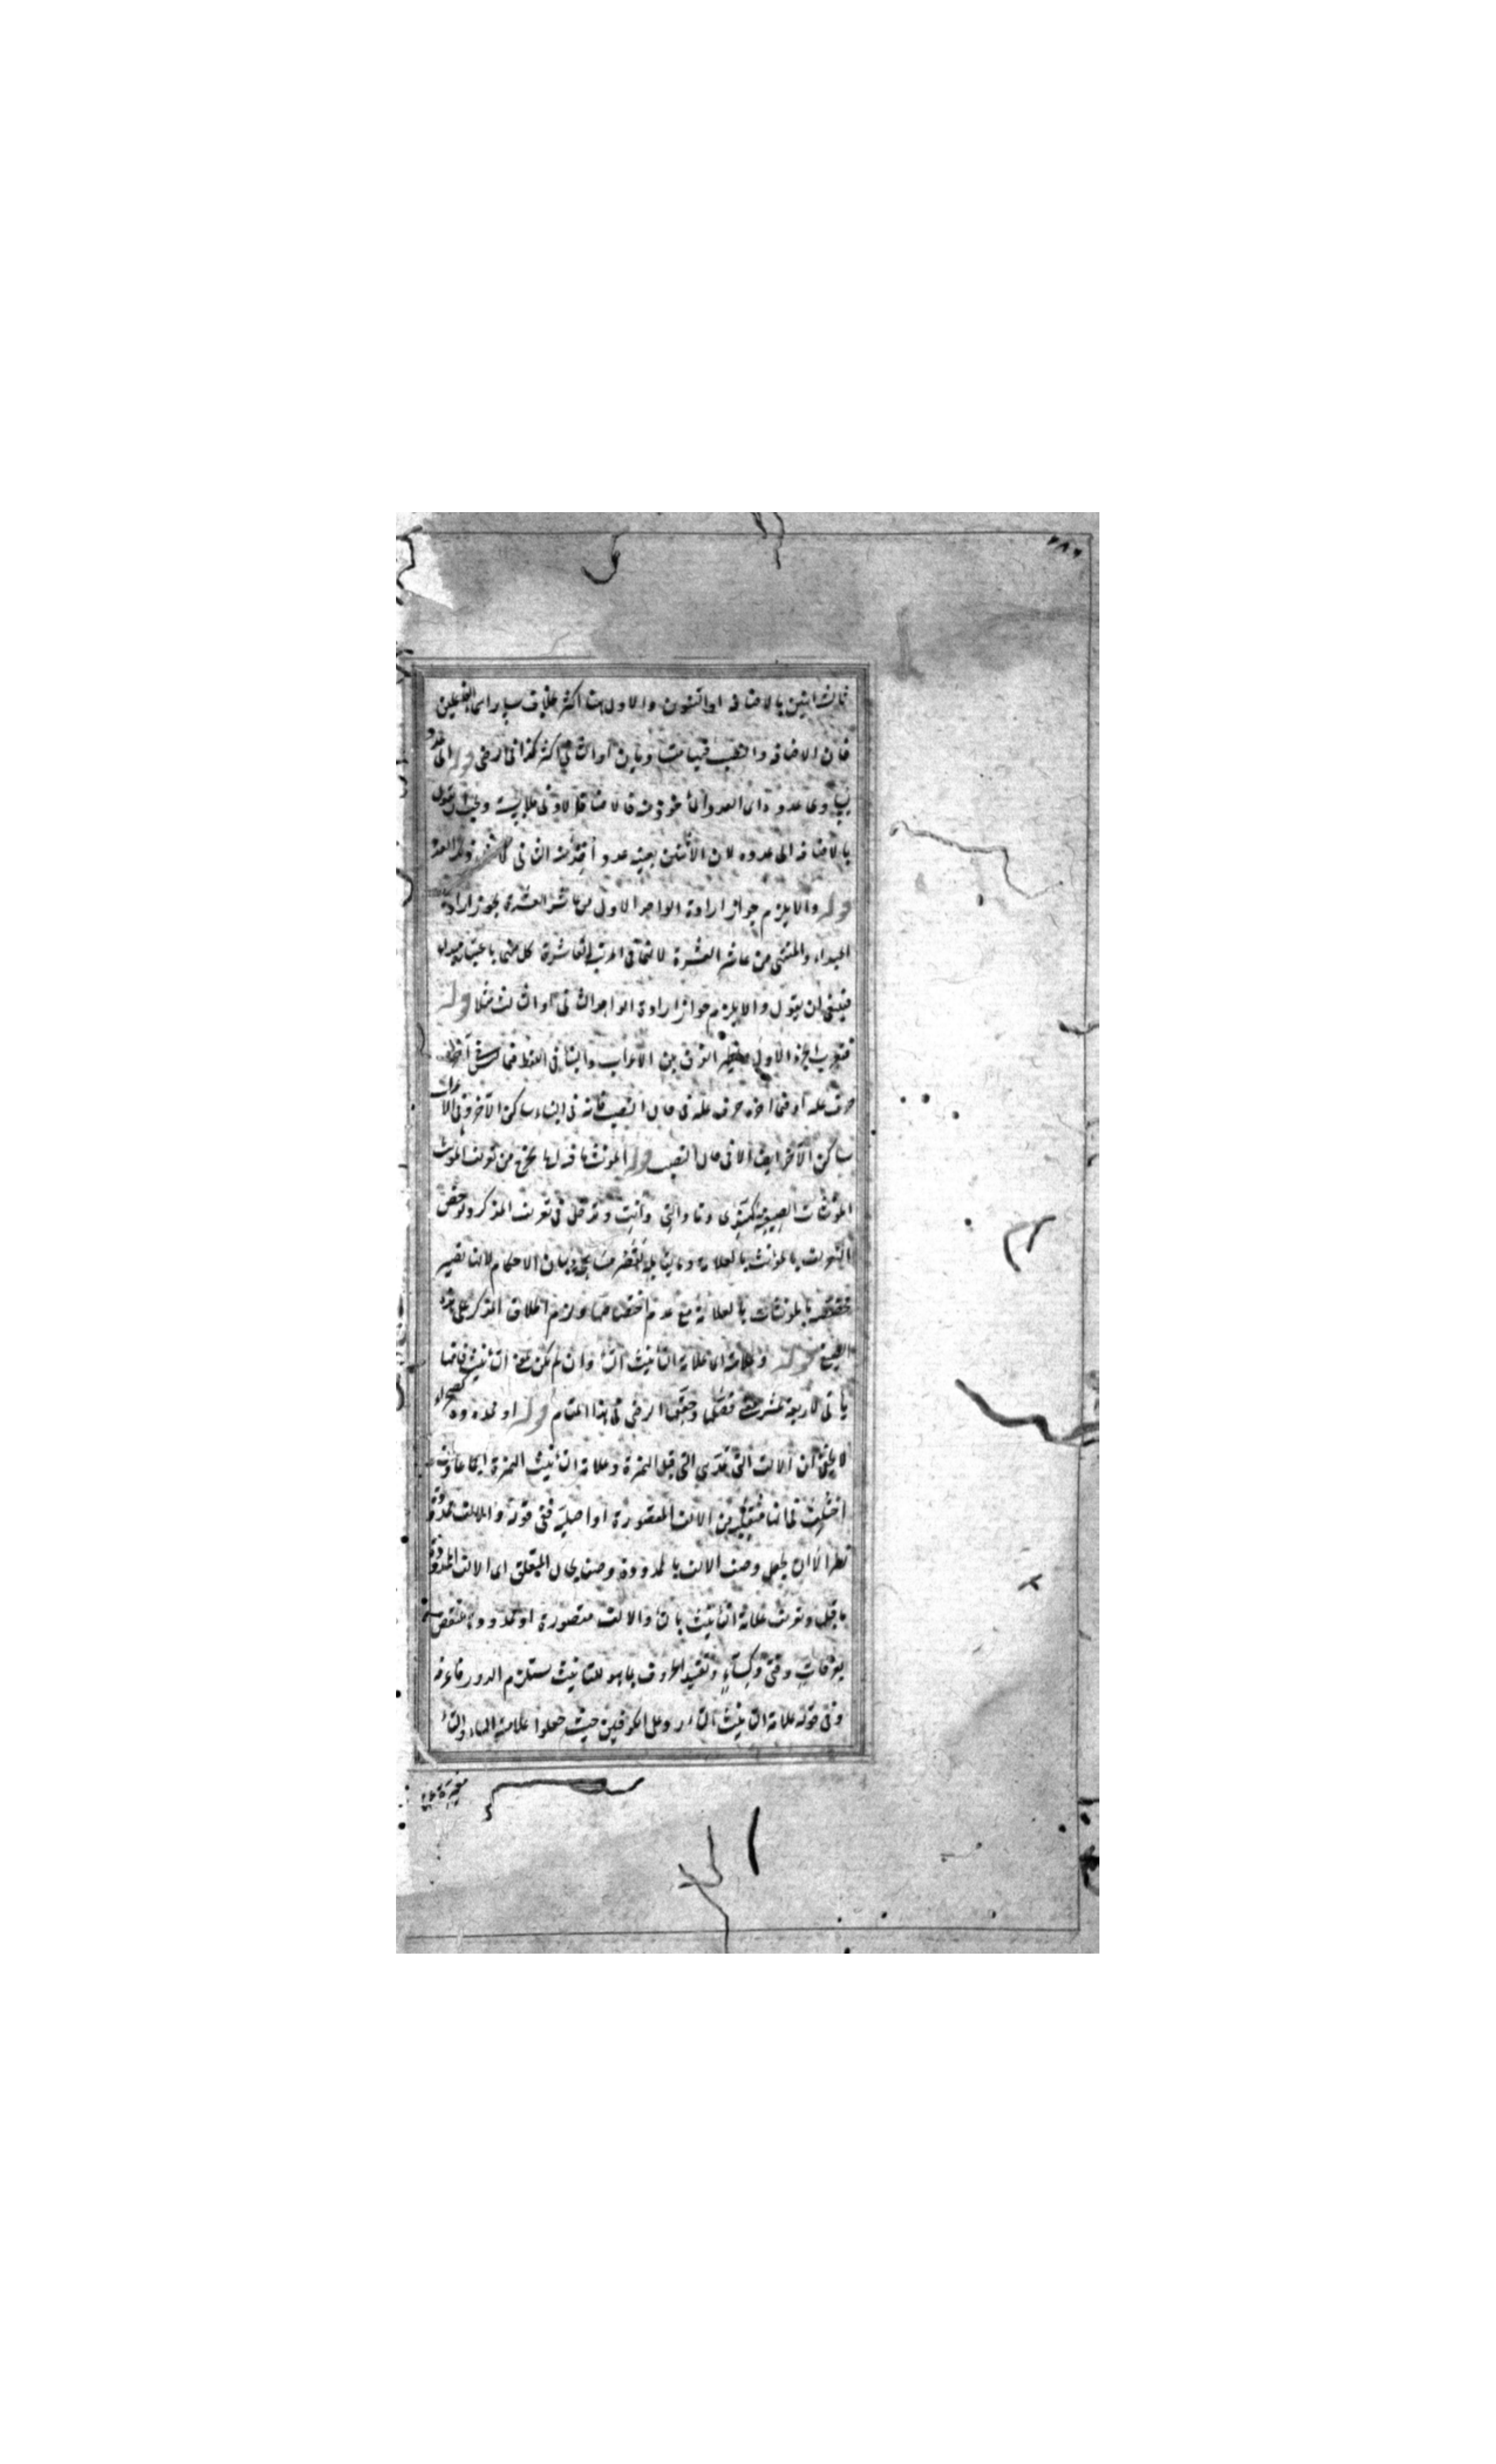 ٢٨٢
ثالث اثنين بالاضافة او التنوين والاول هنا اكثر بخلاف سائر اسماء الفاعلين
فان الاضافة والنصب فيها متساويان او الثاني اكثر كذا في الرضي قوله الى عدد
يساوي عدده اى العدد المأخوذ منه فالاضافة لادنى ملابسة ويجب ان يقول
بالاضافة الى عدده لان الاثنين بعينه عدد الثاني
قوله والا يلزم جواز ارادة الواحد الاول من عاشر العشرة يجوز ارادة
المبداء والمنتهى من عاشر العشرة لانهما في المرتبة العاشرة كل منهما باعتبار مبداء
فينبغي ان يقول والا يلزم جواز ارادة الواحد الثاني او الثالث مثلا قوله
فتعرب الجزء الاول يظهر الفرق بين الاعراب والبناء في اللفظ فيما ليس في آخره
حرف علة او في آخره حرف علة في حال النصب فانه في البناء ساكن الآخر وفي الاعراب
ساكن الآخر ايضا الا في حال النصب قوله المؤنث ما فيه يخرج من تعريف المؤنث
المؤنثات الصيغية كهذي وتا والتي وانت وتدخل في تعريف المذكر وتخصيص
التعريف بالمؤنث بالعلامة بيان الاحكام لانها تصير
مختصة بالمؤنثات بالعلامة مع عدم اختصاصها ويلزم اطلاق المذكر على
الصيغ قوله وعلامته اى علامة التأنيث التاء وان لم يكن معنى التأنيث فانها
يأتي لاربعة عشر معنى فصلها وحققها الرضي في هذا المقام قوله او ممدودة كصحراء
لا يخفى ان الالف التي تمد هي التي قبل الهمزة وعلامة التأنيث الهمزة
اختلف في انها منقلبة من الالف المقصورة او اصلية ففي قوله والالف ممدودة
نظر الا ان يجعل وصف الالف بالممدودة وصف بحال المتعلق اى الالف الممدودة
ما قبلها وتعريف علامة التأنيث بالتاء والالف مقصورة او ممدودة منتقض
بعرفات وفتى وكساء وتقييد الحروف بما هو للتأنيث يستلزم الدور فاعرفه
وفي قوله علامة التأنيث التاء رد على الكوفيين حيث جعلوا علامته الهاء والتاء